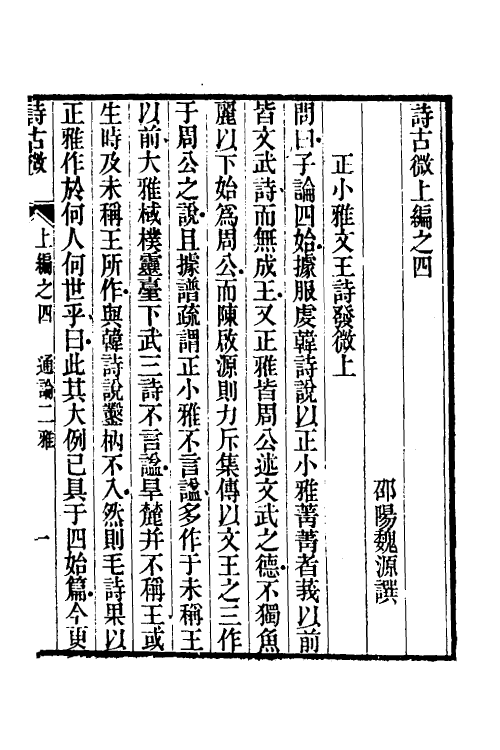 詩古微上編之四
邵陽魏源譔
正小雅文王詩發微上
問曰子論四始據服虔韓詩說以正小雅菁菁者莪以前
皆文武詩而無成王又正雅皆周公述文武之德不獨魚
麗以下始爲周公而陳啟源則力斥集傳以文王之三作
于周公之說且據譜疏謂正小雅不言謚多作于未稱王
以前大雅棫樸靈臺下武三詩不言謚旱麓并不稱王或
生時及未稱王所作與韓詩說鑿枘不入然則毛詩果以
正雅作於何人何世乎曰此其大例已具于四始篇今更
詩古微 上編之四 通論二雅 一